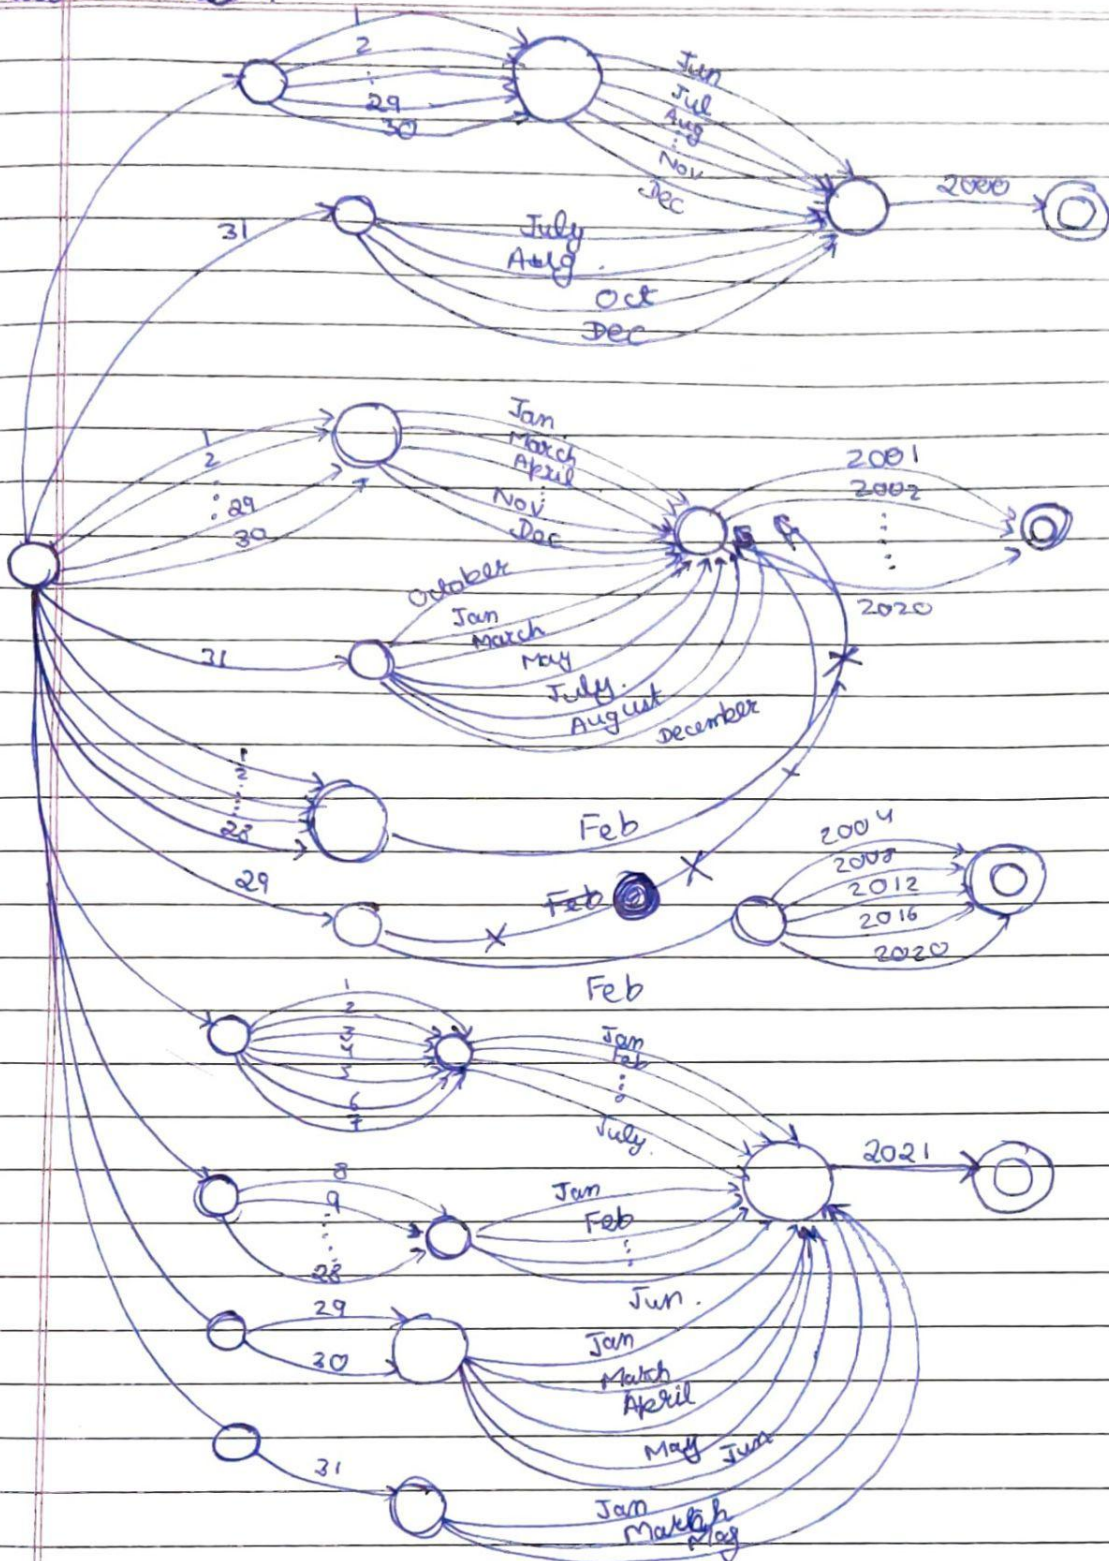 1
2
:
29
30
Jun
Jul
Aug
:
Nov
Dec
2000
31
July
Aug
Oct
Dec
1
2
:
29
30
Jan
March
April
:
Nov
Dec
2001
2002
:
2020
October
Jan
March
May
July
August
December
31
1
2
:
28
Feb
29
Feb
Feb
2004
2008
2012
2016
2020
1
2
3
4
5
6
7
Jan
Feb
:
July
2021
8
9
:
28
Jan
Feb
:
Jun.
29
30
Jan
March
April
May Jun
31
Jan
March
May